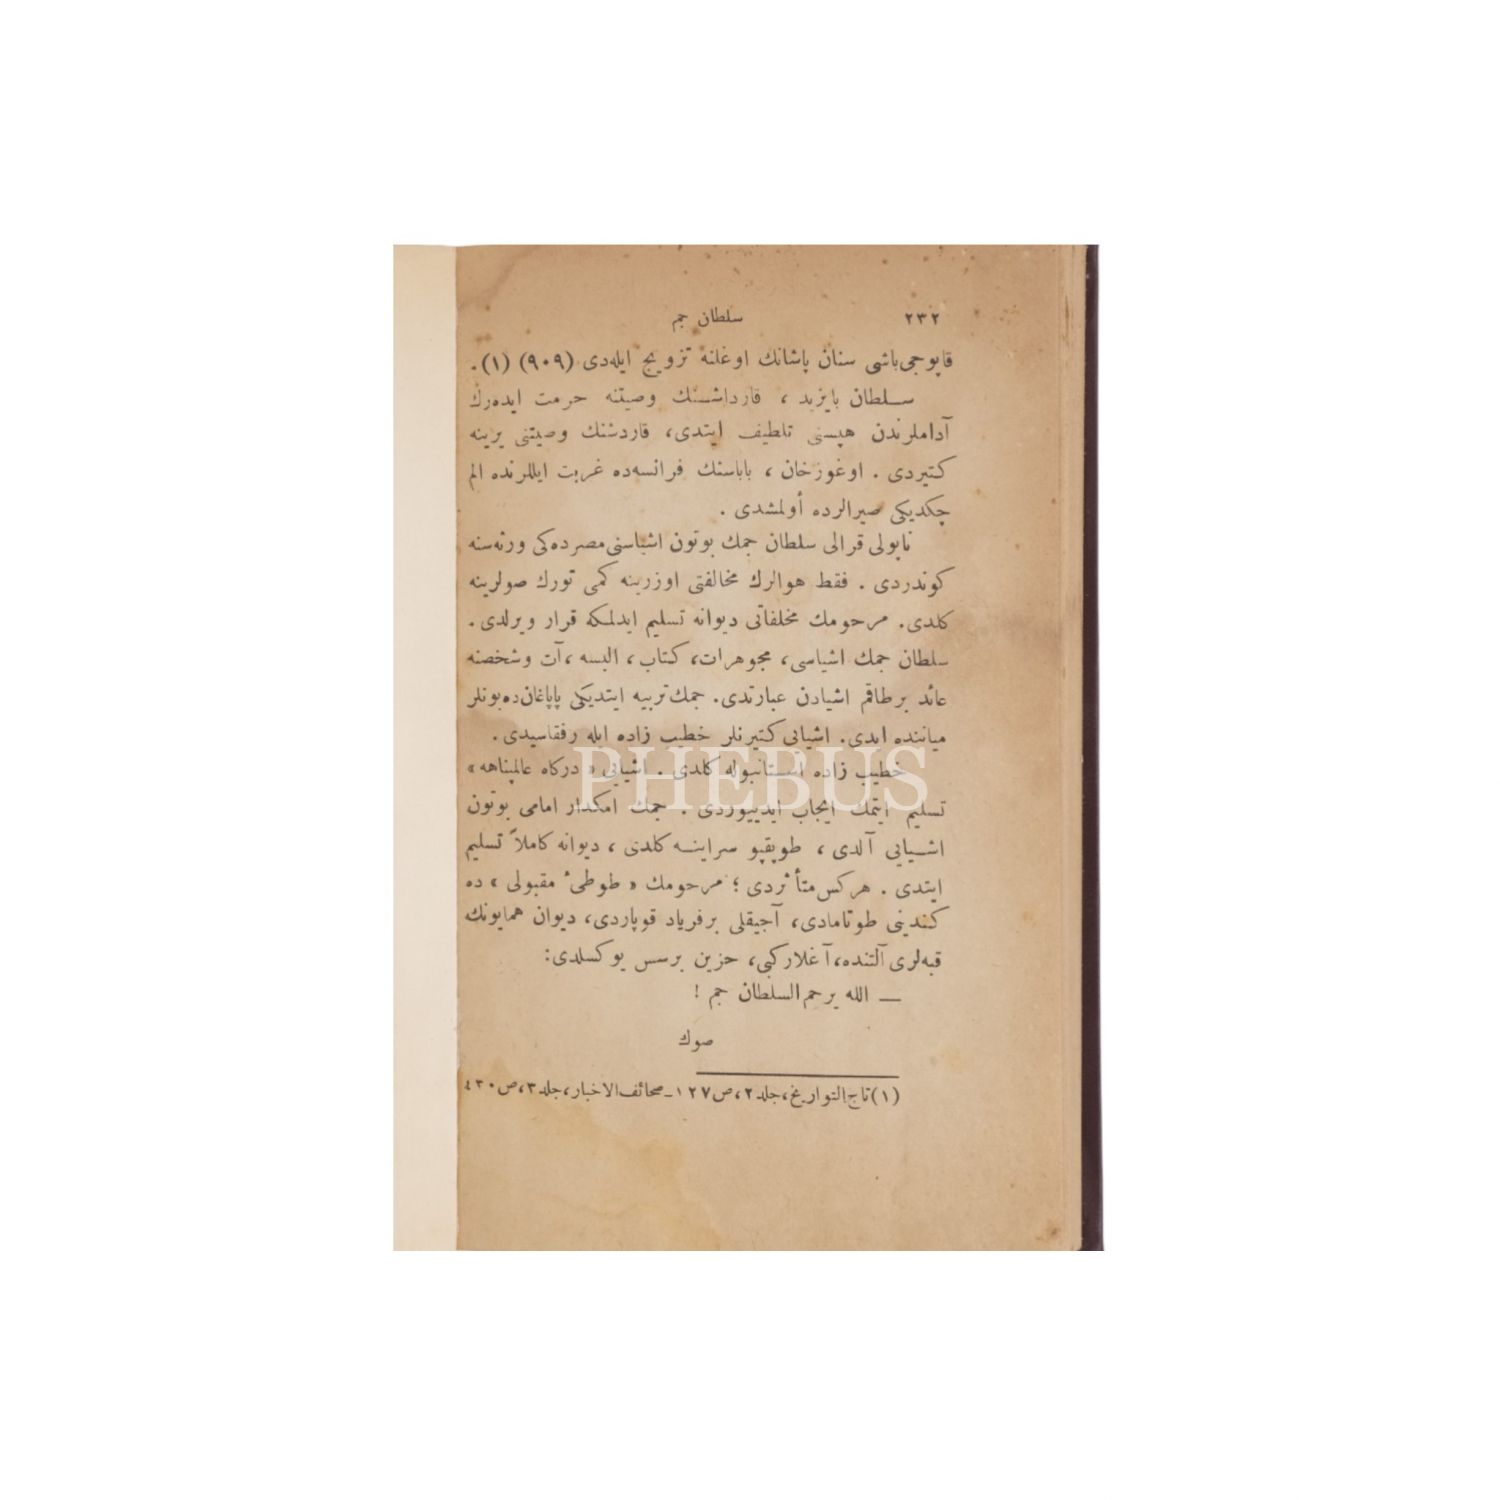 ٢٣٢ سلطان جم
قاپوجی‌باشی سنان پاشانك اوغلنه تزويج ايله‌دی (٩٠٩) (١).
سلطان بايزيد ، قارداشنك وصيتنه حرمت ايده‌رك
آداملرندن هپسنی تلطيف ايتدی، قاردشنك وصيتنی يرينه
كتيردی . اوغوزخان ، باباسنك فرانسه‌ده غربت ايللرنده الم
چكديكی صيرالرده أولمشدی .
ناپولی قرالی سلطان جمك بوتون اشياسنی مصرده‌كی ورثه‌سنه
كوندردی . فقط هوالرك مخالفتی اوزرينه كمی تورك صولرينه
كلدی. مرحومك مخلفاتی ديوانه تسليم ايدلمكه قرار ويرلدی .
سلطان جمك اشياسی، مجوهرات، كتاب، البسه ،آت وشخصنه
عائد برطاقم اشيادن عبارتدی. جمك تربيه ايتديكی پاپاغان‌ده بونلر
مياننده ايدی. اشيايی كتيرنلر خطيب زاده ايله رفقاسيدی .
خطيب زاده استانبوله كلدی . اشيايی « دركاه عالمپناهه »
تسليم ايتمك ايجاب ايدييوردی . جمك امكدار امامی بوتون
اشيايی آلدی ، طوپقپو سراينه كلدی ، ديوانه كاملاً تسليم
ايتدی . هركس متأثردی ؛ مرحومك « طوطیٔ مقبولی » ده
كندينی طوتامادی، آجيقلی برفرياد قوپاردی، ديوان همايونك
قبه‌لری آلتنده، آغلاركبی، حزين برسس يوكسلدی:
— الله يرحم السلطان جم !
صوك
(١) تاج‌التواريخ، جلد ٢، ص ١٢٧ ـ صحائف‌الاخبار، جلد ٣، ص ٤٣٠
PHEBUS